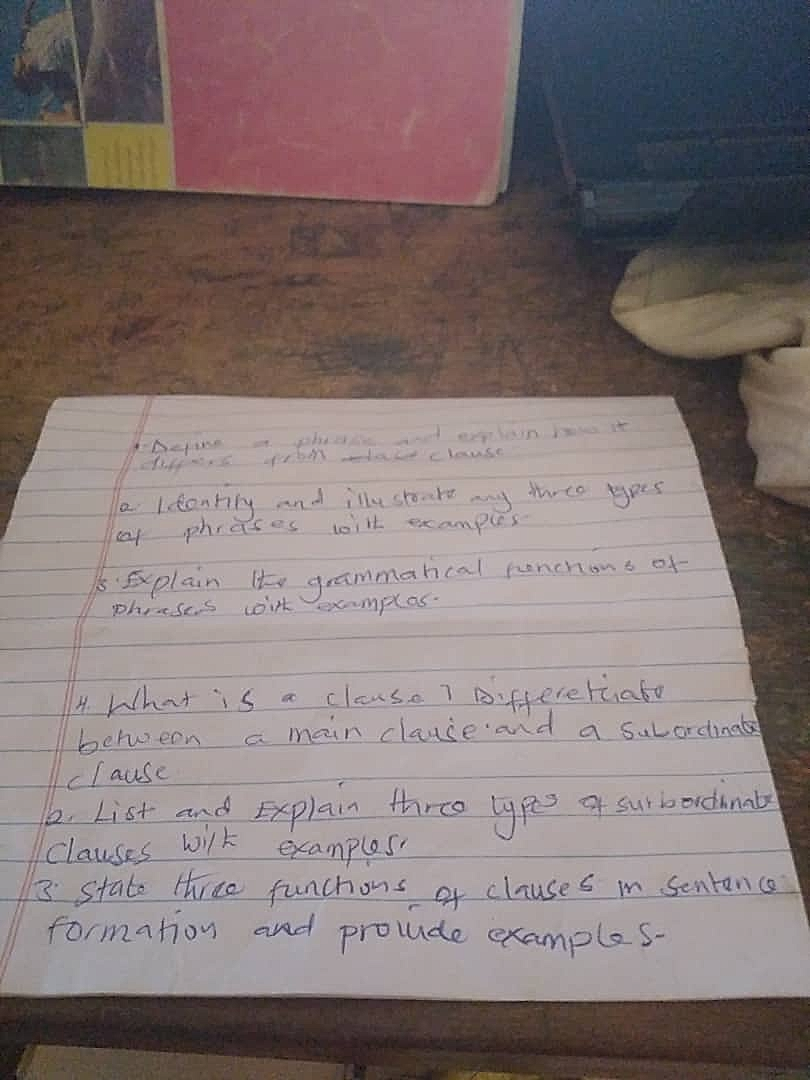 1. Define a phrase and explain how it
differs from clause
2. Identify and illustrate any three types
of phrases with examples-
3. Explain the grammatical functions of
phrases with examples.
4. What is a clause? Differetiate
between a main clause and a subordinate
clause
2. List and Explain three types of surbordinate
Clauses with examples.
3. State three functions of clauses in sentence
formation and provide examples-